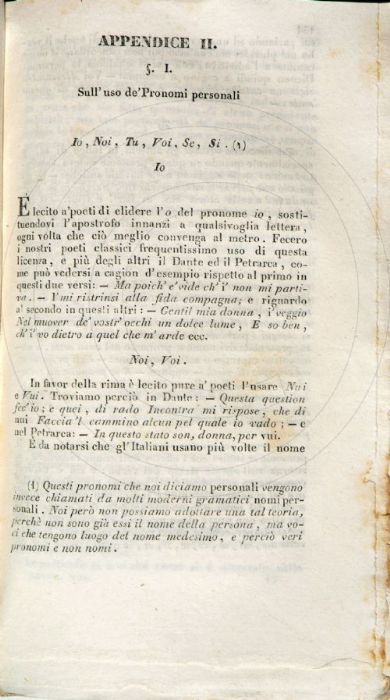 APPENDICE II.
§. I.
Sull'uso de'Pronomi personali
Io, Noi, Tu, Voi, Se, Si. (1)
Io
È lecito a'poeti di elidere l'o del pronome io, sosti-
tuendovi l'apostrofo innanzi a qualsivoglia lettera,
ogni volta che ciò meglio convenga al metro. Fecero
i nostri poeti classici frequentissimo uso di questa
licenza, e più degli altri il Dante ed il Petrarca, co-
me può vedersi a cagion d'esempio rispetto al primo in
questi due versi: — Ma poich' e' vide ch' i' non mi parti-
va. — I' mi ristrinsi alla fida compagna; e riguardo
al secondo in questi altri: — Gentil mia donna, i' veggio
Nel muover de' vostr' occhi un dolce lume, E so ben,
ch' i' vo dietro a quel che m' arde ecc.
Noi, Voi.
In favor della rima è lecito pure a' poeti l'usare Nui
e Vui. Troviamo perciò in Dante: — Questa question
fec'io; e quei, di rado Incontra mi rispose, che di
nui Faccia 'l cammino alcun pel quale io vado; — e
nel Petrarca: — In questo stato son, donna, per vui.
È da notarsi che gl'Italiani usano più volte il nome
(1) Questi pronomi che noi diciamo personali vengono
invece chiamati da molti moderni gramatici nomi per-
sonali. Noi però non possiamo adottare una tal teoria,
perchè non sono già essi il nome della persona, ma vo-
ci che tengono luogo del nome medesimo, e perciò veri
pronomi e non nomi.